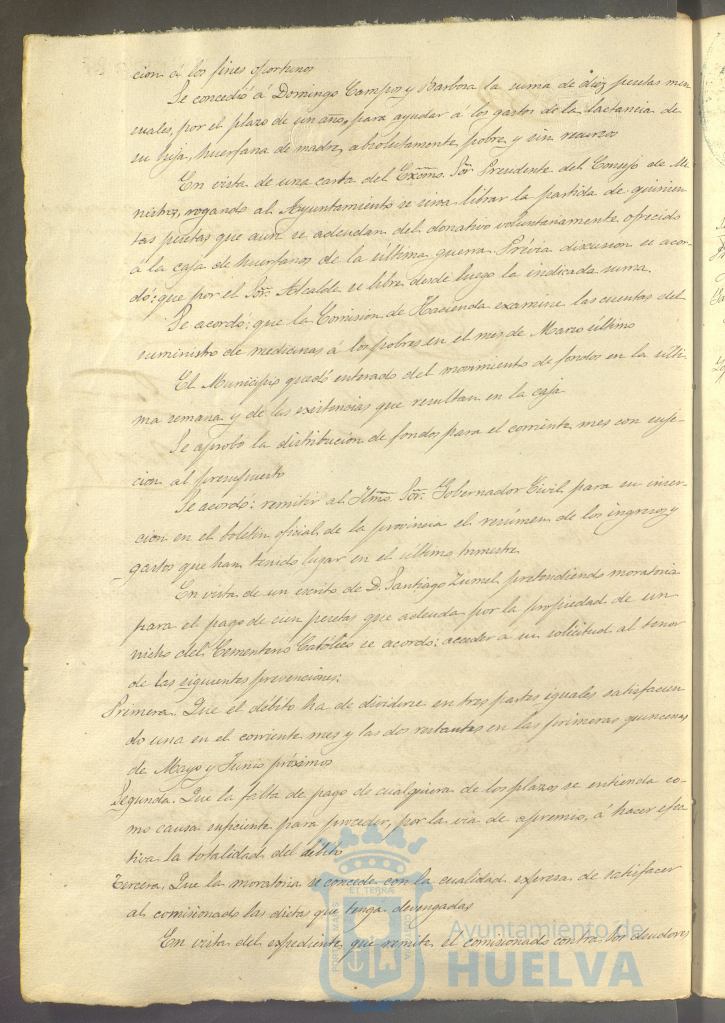 cion á los fines oportunos
Se concedió á Domingo Campos y Barbosa la suma de diez pesetas men
suales, por el plazo de un año, para ayudar á los gastos de la lactancia de
su hija, huerfana de madre, absolutamente pobre y sin recursos
En vista de una carta del Excmo. Sor. Presidente del Consejo de Mi-
nistros, rogando al Ayuntamiento se sirva librar la partida de quinien
tas pesetas que aun se adeudan del donativo voluntariamente ofrecido
á la caja de huerfanos de la última guerra. Prévia discusion se acor-
dó: que por el Sor. Alcalde se libre desde luego la indicada suma.
Se acordó: que la Comision de Hacienda examine las cuentas del
suministro de medicinas á los pobres en el mes de Marzo último
El Municipio quedó enterado del movimiento de fondos en la últi-
ma semana y de las existencias que resultan en la caja
Se aprobó la distribucion de fondos para el corriente mes con suje-
cion al presupuesto
Se acordó: remitir al Iltmo. Sor. Gobernador Civil para su inser-
cion en el boletin oficial de la provincia el resúmen de los ingresos y
gastos que han tenido lugar en el último trimestre
En vista de un escrito de D. Santiago Zumel pretendiendo moratoria
para el pago de cien pesetas que adeuda por la propiedad de un
nicho del Cementerio Católico se acordó: acceder á su solicitud al tenor
de las siguientes prevenciones:
Primera. Que el débito ha de dividirse en tres partes iguales satisfacien
do una en el corriente mes y las dos restantes en las primeras quincenas
de Mayo y Junio próximos
Segunda. Que la falta de pago de cualquiera de los plazos se entienda co-
mo causa suficiente para proceder, por la via de apremio, á hacer efec
tiva la totalidad del débito
Tercera. Que la moratoria se concede con la cualidad expresa de satisfacer
al comisionado las dietas que tenga devengadas
En vista del expediente, que remite el comisionado contra los deudores
PORTUS MARIS ET TERRÆ CUSTODIA
Ayuntamiento de
HUELVA